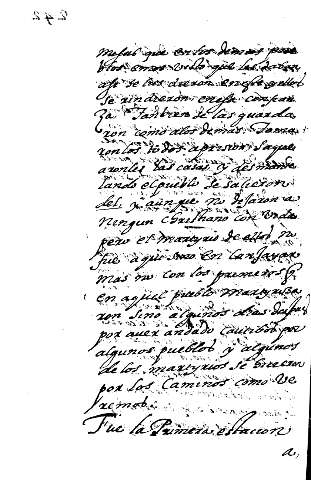 242
mesal que en los demas pue
blos emos visto que las pala
se les dieron en esta y ellos
se rindieron en esa confian
za. Tambien se las guarda
ron como alos demas. Toma
ronlos todos apresion saque
aronles las casas y desman
telando el pueblo se salieron
del y aunque no dejaron a
ningun christiano con vida
pero el martyrio de ellos no
fue aqui sino en
mas no con los primeros q
en aquel pueblo martyriza
ron sino algunos dias despues
por aver andado cautibos por
algunos pueblos y algunos
de los martyrios se hicieron
por los caminos como ve
remos.
Fue la Primera estacion
a,